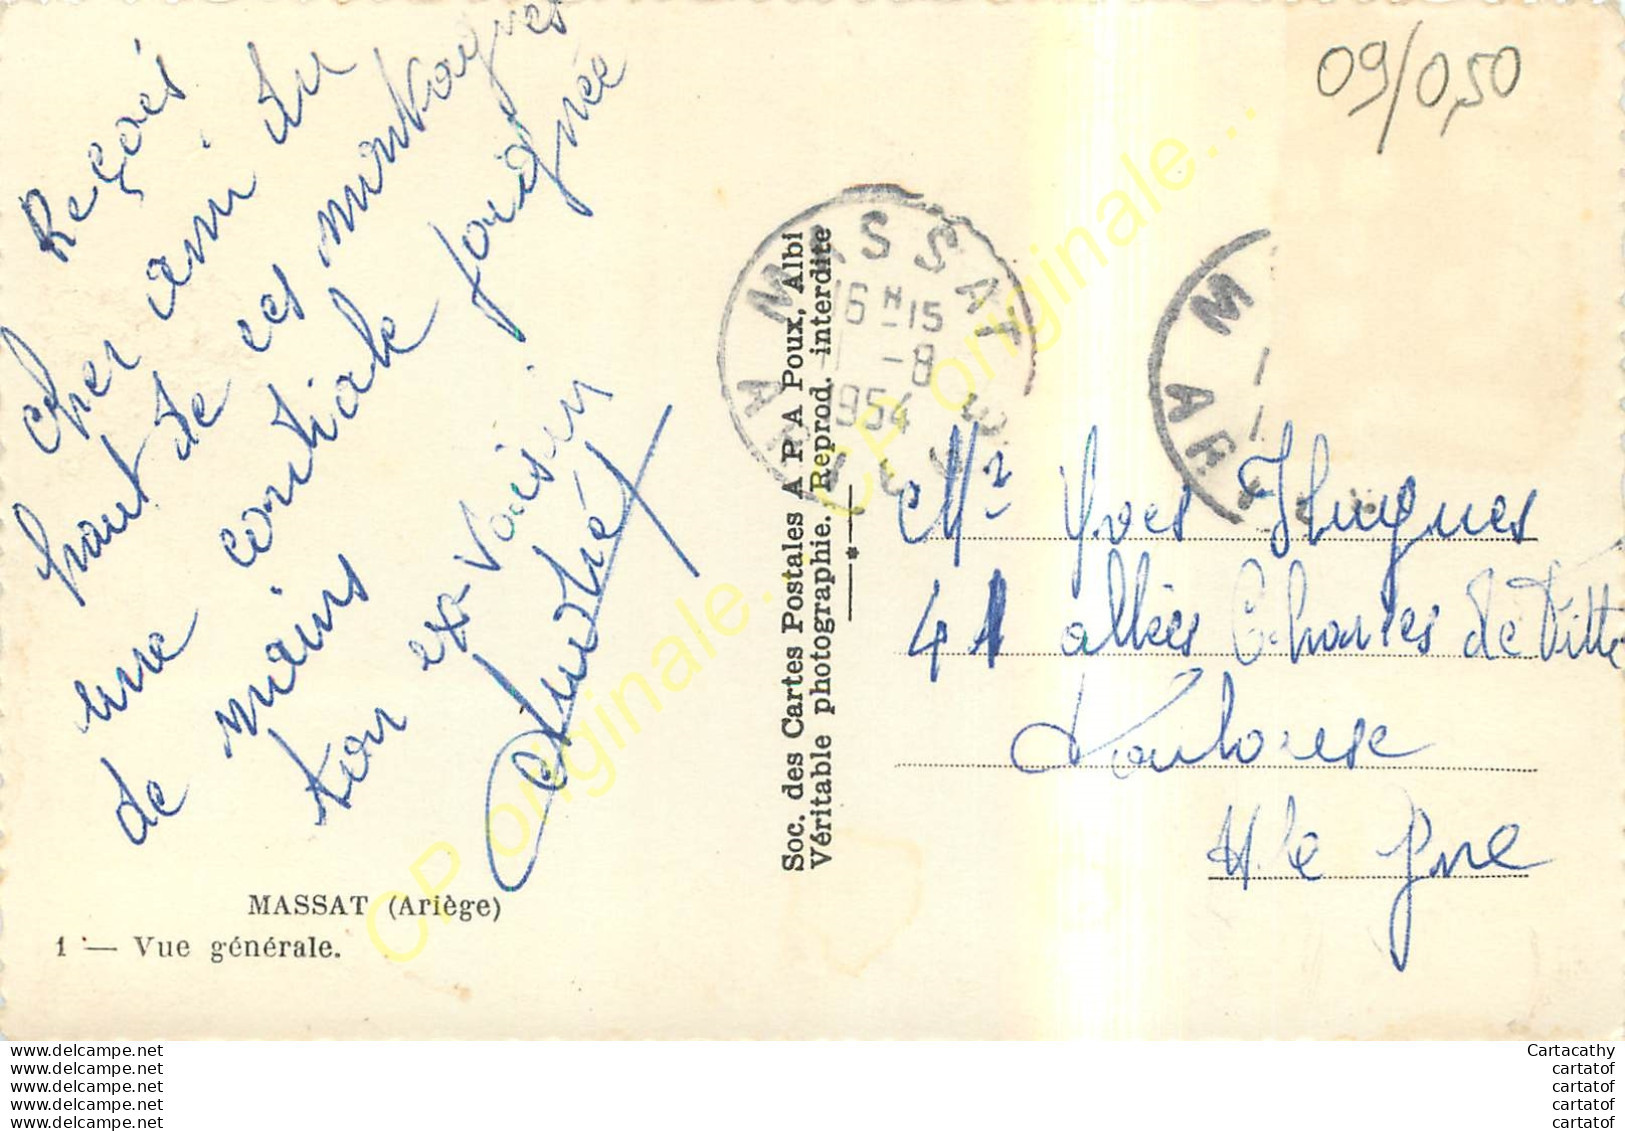 Reçois
cher ami du
haut de ces montagnes
une cordiale poignée
de mains
ton ex-voisin
André
MASSAT (Ariège)
1 — Vue générale.
Soc. des Cartes Postales A P A Poux, Albi
Véritable photographie. Reprod. interdite
09/0,50
MASSAT
16 H 15
1 -8
1954
ARIEGE
M
AR
Mr Yves Hugues
41 allées Charles de Fitte
Toulouse
Hte Gne
CP originale...
CP originale...
www.delcampe.net
www.delcampe.net
www.delcampe.net
www.delcampe.net
www.delcampe.net
Cartacathy
cartatof
cartatof
cartatof
cartatof